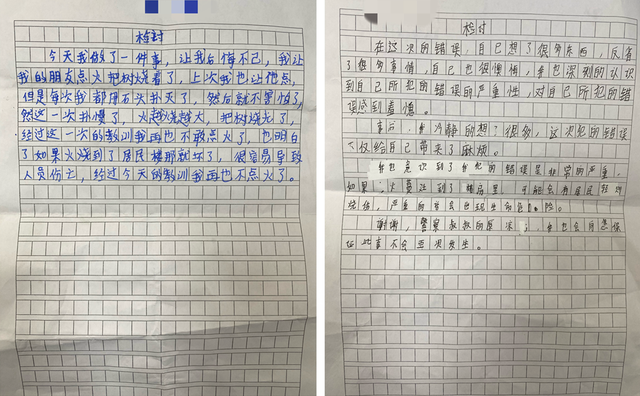 检讨
今天我做了一件事，让我后悔不已，我让
我的朋友点火把树烧着了，上次我也让他点，
但是每次我都用石头扑灭了，然后就不害怕了，
然这一次扑慢了，火越烧越大，把树烧光了，
经过这一次的教训我再也不敢点火了，也明白
了如果火烧到了居民楼那就坏了，很容易导致
人员伤亡，经过今天的教训我再也不点火了。
检讨
在这次的错误，自己想了很多东西，反省
了很多事情，自己也很懊悔，我也深刻的认识
到自己所犯的错误的严重性，对自己所犯的错
误感到羞愧。
我冷静的想了很多，这次犯的错误
不仅给自己带来了麻烦。
我也意识到了自己的错误是非常的严重，
如果，火蔓延到了楼房里，可能会有居民
烧伤，严重的会出现生命危险。
谢谢，警察叔叔的原谅，我也会
证此事不会再次发生。